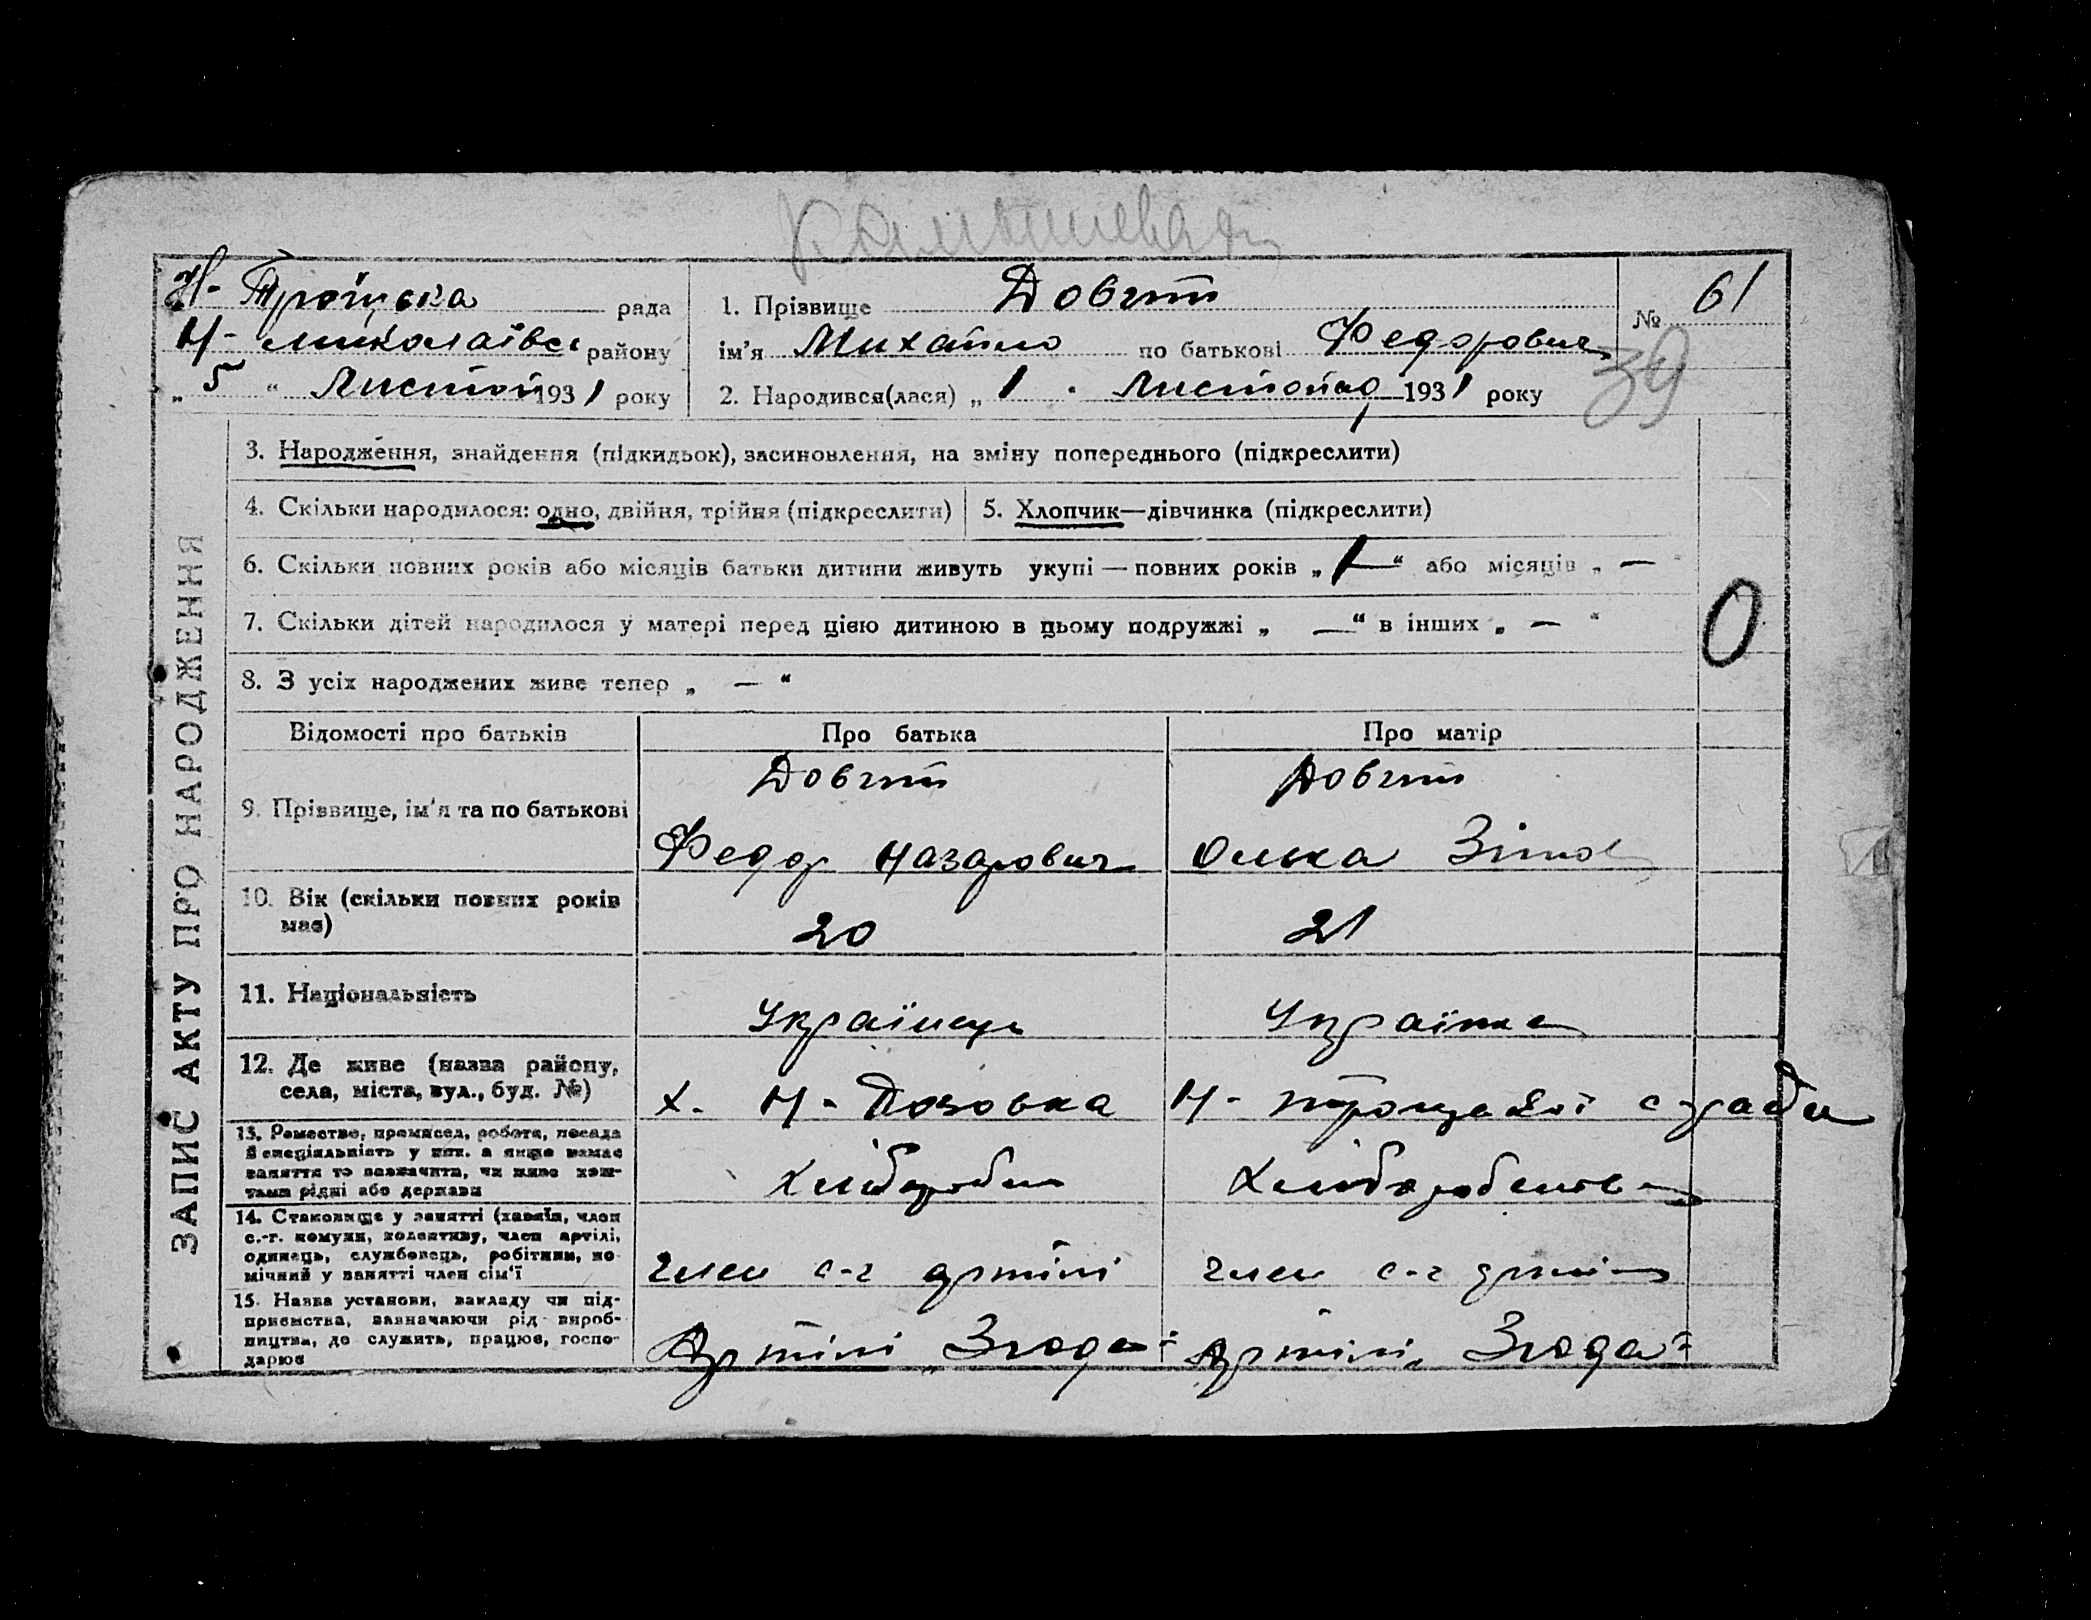 Н- Троїцька рада
Н- Миколаївсь району
„ 5 “ Листоп 1931 року
1. Прізвище Довгит
ім’я Михайло по батькові Федорович
2. Народився(лася) „ 1 “ Листопад 1931 року
№ 61
39
ЗАПИС АКТУ ПРО НАРОДЖЕННЯ
3. Народження, знайдення (підкидьок), засиновлення, на зміну попереднього (підкреслити)
4. Скільки народилося: одно, двійня, трійня (підкреслити)
5. Хлопчик—дівчинка (підкреслити)
6. Скільки повних років або місяців батьки дитини живуть укупі — повних років „ 1— “ або місяців „ — “
7. Скільки дітей народилося у матері перед цією дитиною в цьому подружжі „ — “ в інших „ — “
0
8. З усіх народжених живе тепер „ — “
Відомості про батьків Про батька Про матір
9. Прізвище, ім’я та по батькові
Довгит
Федор Назарович
Довгит
Олька
10. Вік (скільки повних років має)
20
21
11. Національність
Українець
Українка
12. Де живе (назва району,
села, міста, вул., буд. №)
х. Н- Н- Троїцької с/ради
13. Ремество, промисел, робота, посада
й спеціяльність у них. а якщо немає
заняття то зазначити, чи живе кош-
тами рідні або держави
Хлібороб
14. Становище у занятті (хазяїн, член
с.-г. комуни, колективу, член артілі,
одинець, службовець, робітник, по-
мічний у занятті член сім’ї
член с-г артілі
член с-г артілі
15. Назва установи, закладу чи під-
приємства, зазначаючи рід вироб-
ництва, де служить, працює, госпо-
дарює
Артілі „Згода“
Артілі „Згода“